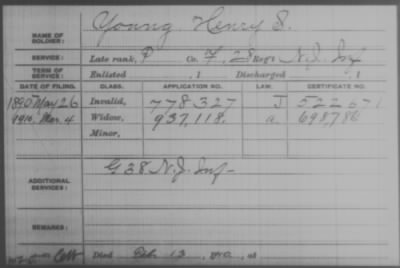 Young Henry S.
NAME OF SOLDIER:
SERVICE: Late rank, P Co. F, 28 Reg't N.J. Inf
TERM OF SERVICE: Enlisted , 1 Discharged , 1
DATE OF FILING. CLASS. APPLICATION NO. LAW. CERTIFICATE NO.
1890 May 26 Invalid, 778.327 J 522.671
1910. Mar. 4 Widow, 937.118. a. 698.786
Minor,
G 38 N.J. Inf-
ADDITIONAL SERVICES:
REMARKS:
Died Feb. 13, 1910, at